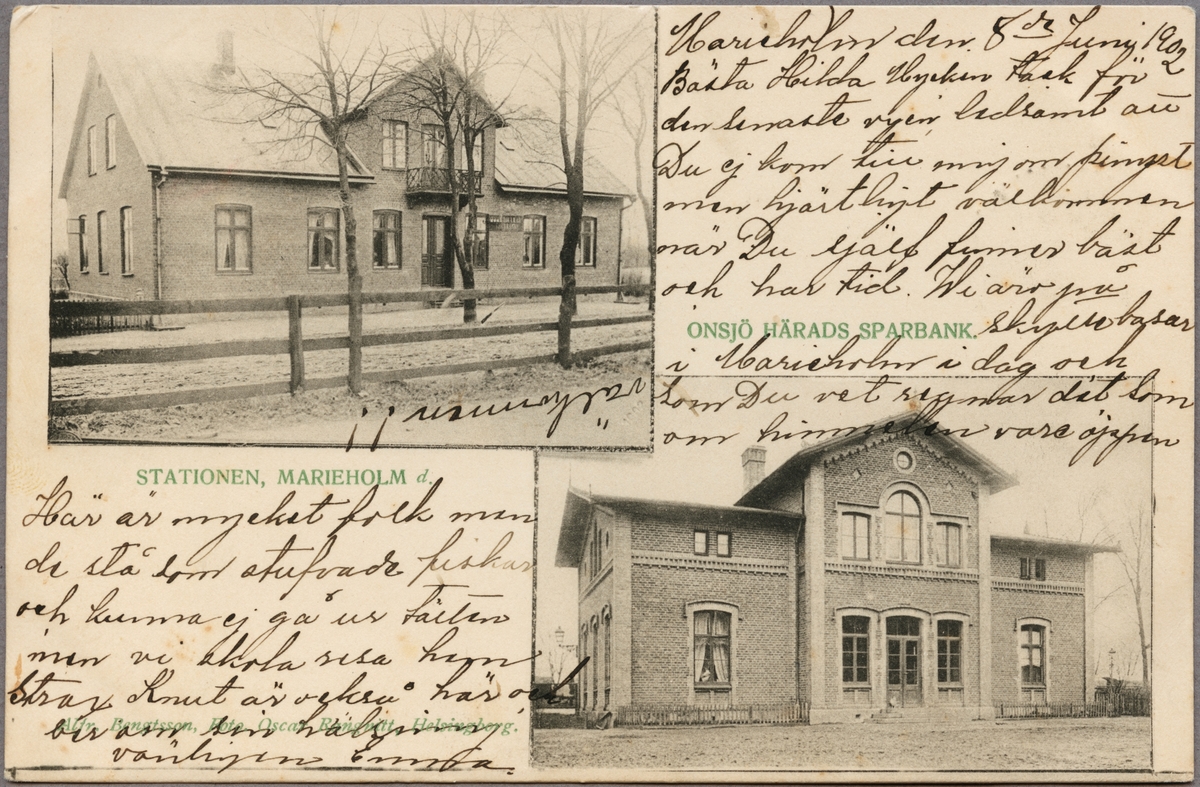 Marieholm den 8de Juni 1902
Bästa Hilda Mycken tack för
den senaste vyen, ledsamt att
Du ej kom till mig om pingst
men hjärtligt välkommen
när Du själf finner bäst
och har tid. Vi äro på
ONSJÖ HÄRADS SPARBANK.
skyttebasar
i Marieholm i dag och
som Du vet regnar det som
om himmelen vore öppen
välkommen!!
STATIONEN, MARIEHOLM d.
Här är mycket folk men
de stå som stufvade fiskar
och kunna ej gå ur tälten
men vi skola resa hem
strax Knut är också här och
Alfr. Bengtsson, Foto. Oscar Helsingborg.
ber om sin hälsning
vänligen Emma.